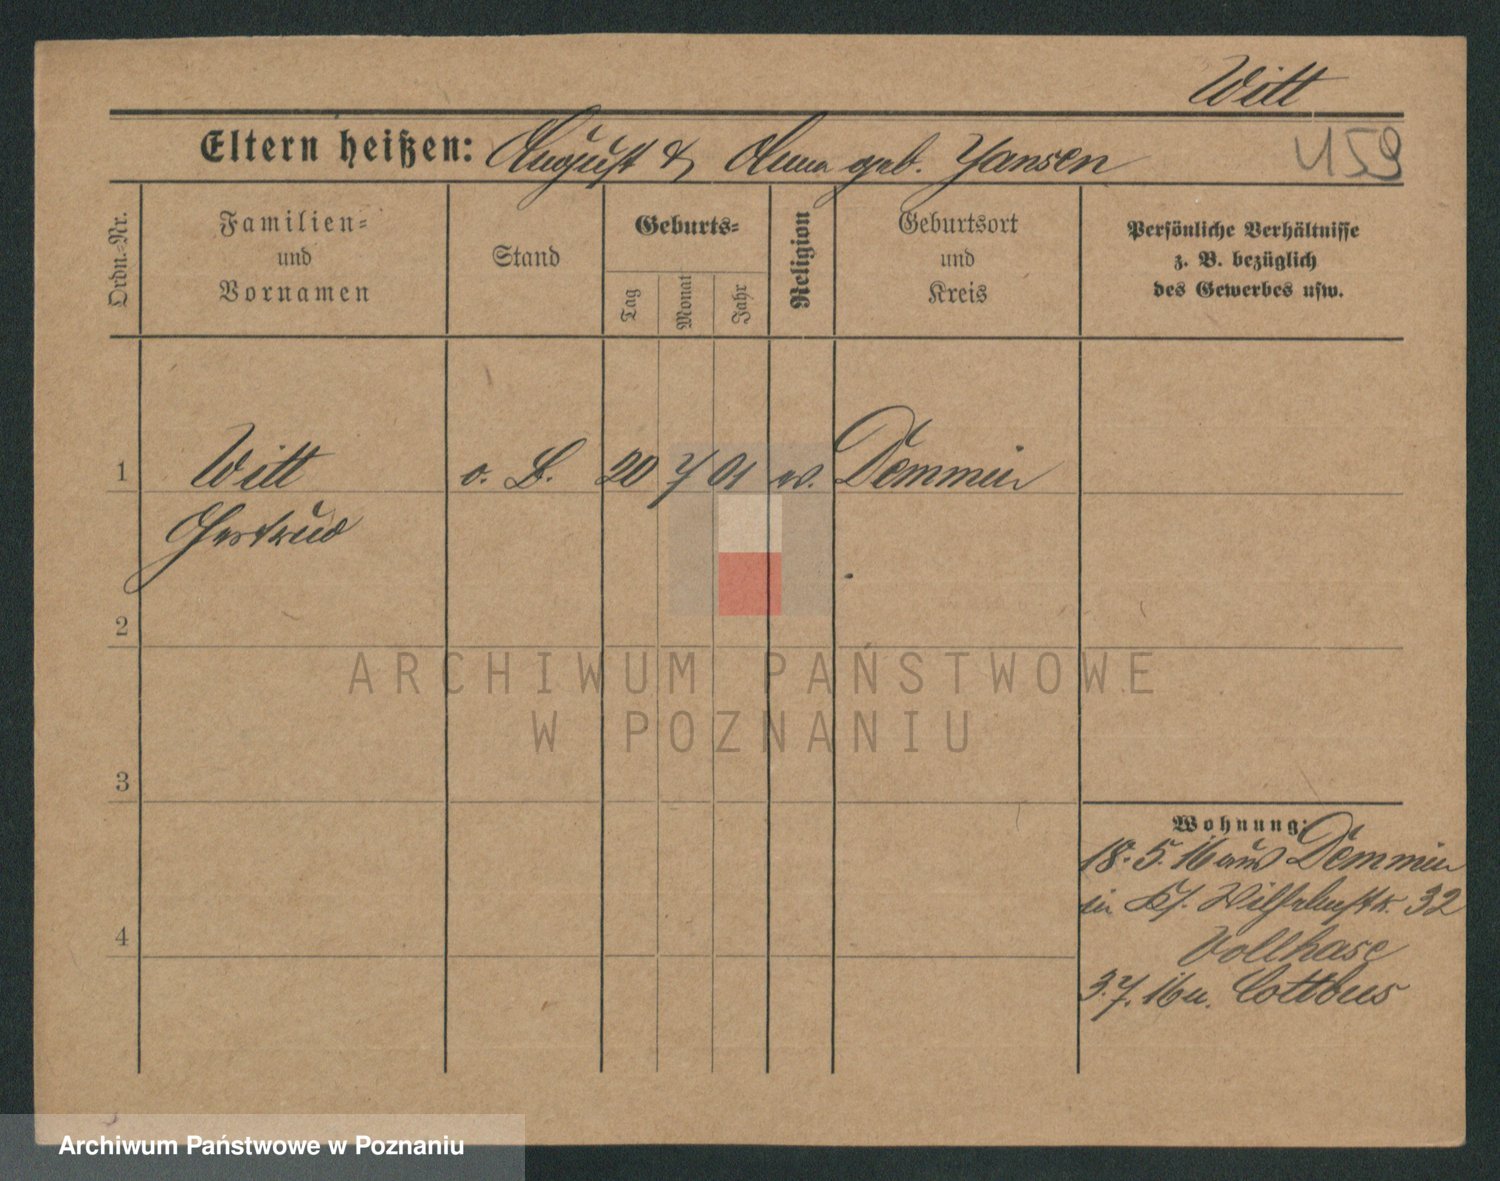 Witt
Eltern heißen: August & Anna geb. Jansen
4159
Ordn.-Nr.
Familien-
und
Vornamen
Stand
Geburts-
Tag
Monat
Jahr
Religion
Geburtsort
und
Kreis
Persönliche Verhältnisse
z. B. bezüglich
des Gewerbes usw.
1 Witt o. B. 20 7 01 ev. Demmin
Gertrud
2
ARCHIWUM PAŃSTWOWE
W POZNANIU
3
Wohnung:
18.5.16 aus Demmin
in 32
Vollhase
4
3.7.16 n. Cottbus
Archiwum Państwowe w Poznaniu